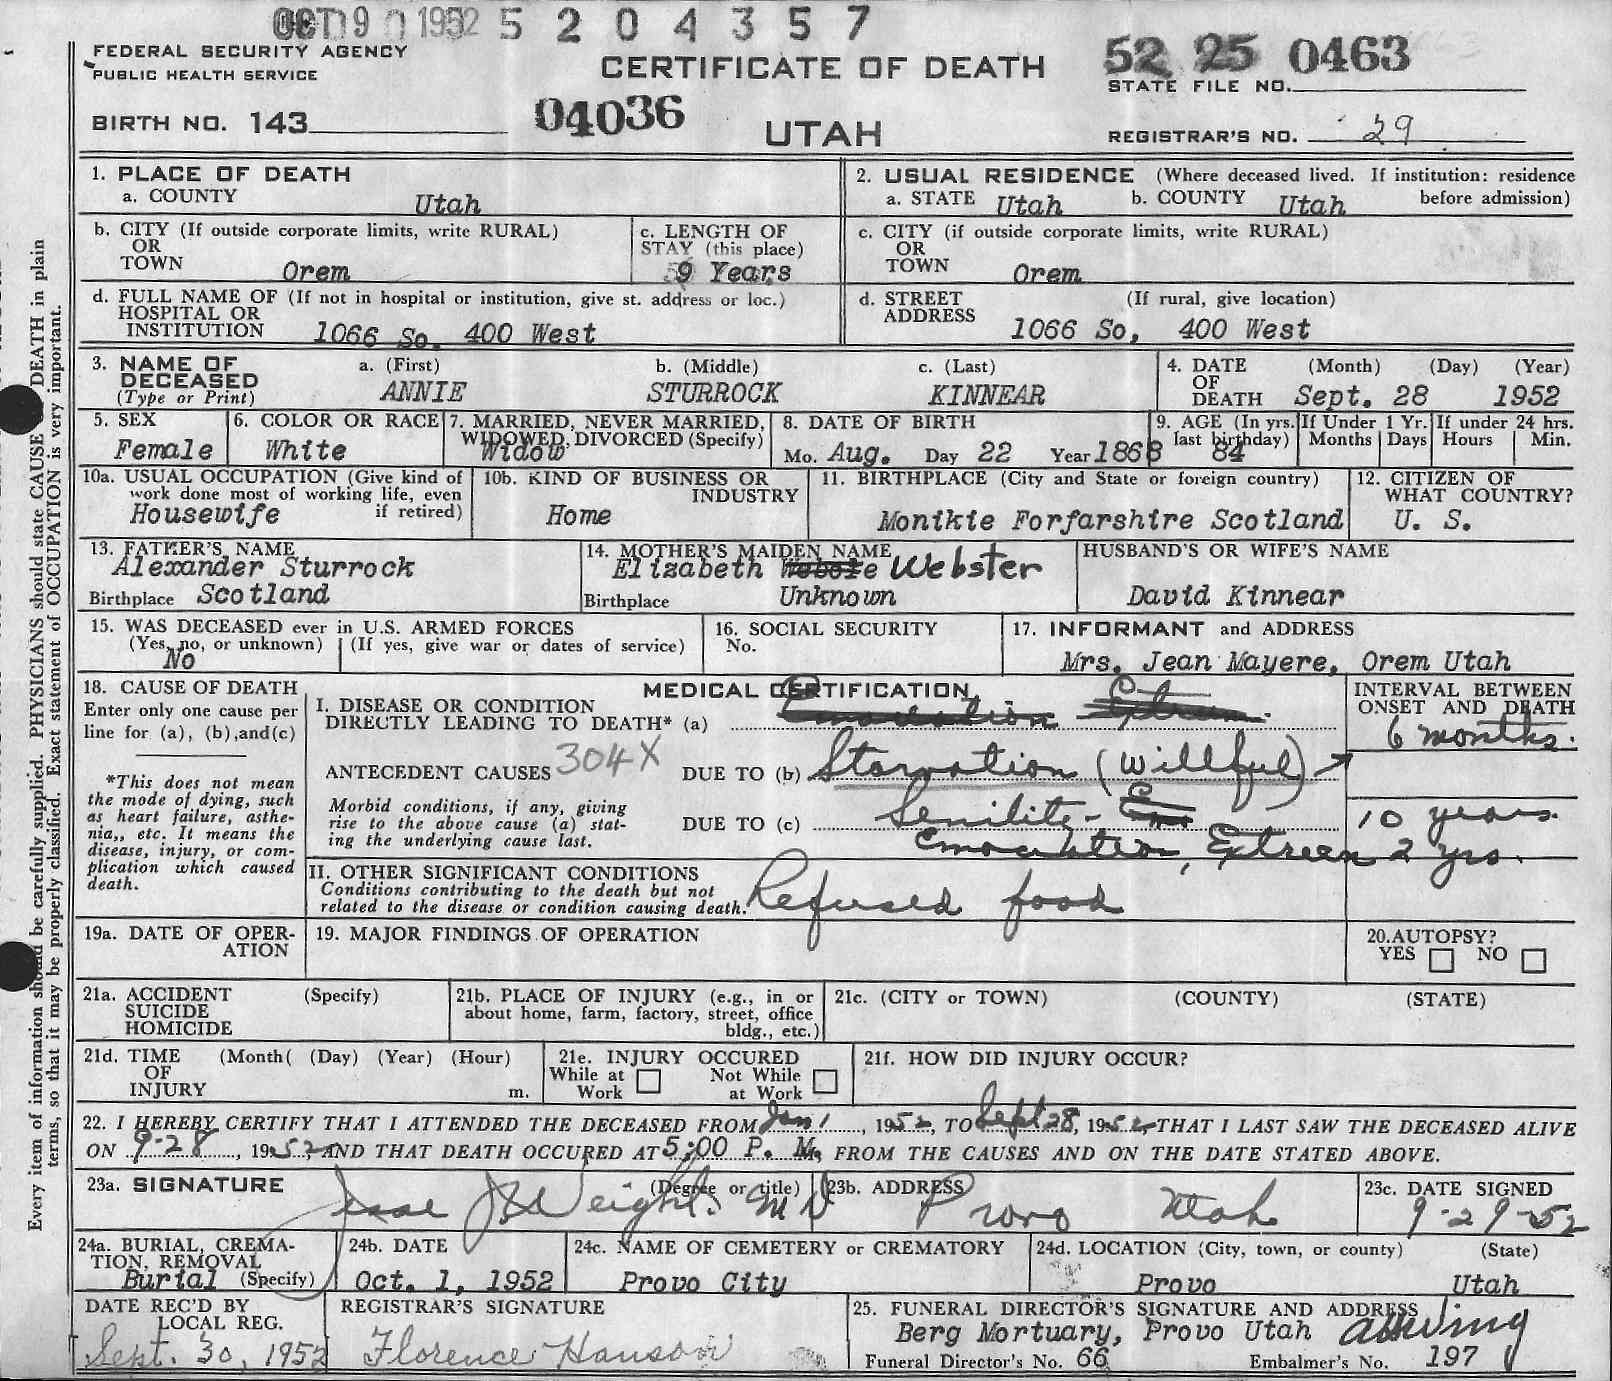 OCT 9 1952 5 2 0 4 3 5 7
FEDERAL SECURITY AGENCY
PUBLIC HEALTH SERVICE
CERTIFICATE OF DEATH
52 25 0463
STATE FILE NO.
BIRTH NO. 143
04036
UTAH
REGISTRAR'S NO. 29
1. PLACE OF DEATH
a. COUNTY Utah
2. USUAL RESIDENCE (Where deceased lived. If institution: residence before admission)
a. STATE Utah b. COUNTY Utah
b. CITY (If outside corporate limits, write RURAL)
OR
TOWN Orem
c. LENGTH OF
STAY (this place)
9 Years
c. CITY (if outside corporate limits, write RURAL)
OR
TOWN Orem
d. FULL NAME OF (If not in hospital or institution, give st. address or loc.)
HOSPITAL OR
INSTITUTION 1066 So. 400 West
d. STREET (If rural, give location)
ADDRESS 1066 So, 400 West
3. NAME OF
DECEASED
(Type or Print)
a. (First) b. (Middle) c. (Last)
ANNIE STURROCK KINNEAR
4. DATE (Month) (Day) (Year)
OF
DEATH Sept. 28 1952
5. SEX
Female
6. COLOR OR RACE
White
7. MARRIED, NEVER MARRIED,
WIDOWED, DIVORCED (Specify)
Widow
8. DATE OF BIRTH
Mo. Aug. Day 22 Year 1868
9. AGE (In yrs.
last birthday)
84
If Under 1 Yr.
Months Days
If under 24 hrs.
Hours Min.
10a. USUAL OCCUPATION (Give kind of
work done most of working life, even
if retired)
Housewife
10b. KIND OF BUSINESS OR
INDUSTRY
Home
11. BIRTHPLACE (City and State or foreign country)
Monikie Forfarshire Scotland
12. CITIZEN OF
WHAT COUNTRY?
U. S.
13. FATHER'S NAME
Alexander Sturrock
Birthplace Scotland
14. MOTHER'S MAIDEN NAME
Elizabeth Webster
Birthplace Unknown
HUSBAND'S OR WIFE'S NAME
David Kinnear
15. WAS DECEASED ever in U.S. ARMED FORCES
(Yes, no, or unknown) (If yes, give war or dates of service)
No
16. SOCIAL SECURITY
No.
17. INFORMANT and ADDRESS
Mrs. Jean Mayere, Orem Utah
18. CAUSE OF DEATH
Enter only one cause per
line for (a), (b), and (c)
*This does not mean
the mode of dying, such
as heart failure, asthe-
nia,, etc. It means the
disease, injury, or com-
plication which caused
death.
MEDICAL CERTIFICATION
I. DISEASE OR CONDITION
DIRECTLY LEADING TO DEATH* (a) Emaciation Extreem
INTERVAL BETWEEN
ONSET AND DEATH
6 months.
ANTECEDENT CAUSES 304X DUE TO (b) Starvation (willful)
Morbid conditions, if any, giving
rise to the above cause (a) stat-
ing the underlying cause last.
DUE TO (c) Senility - 10 years.
Emaciation, Extreen 2 yrs.
II. OTHER SIGNIFICANT CONDITIONS
Conditions contributing to the death but not
related to the disease or condition causing death.
Refused food
19a. DATE OF OPER-
ATION
19. MAJOR FINDINGS OF OPERATION
20. AUTOPSY?
YES NO
21a. ACCIDENT (Specify)
SUICIDE
HOMICIDE
21b. PLACE OF INJURY (e.g., in or
about home, farm, factory, street, office
bldg., etc.)
21c. (CITY or TOWN) (COUNTY) (STATE)
21d. TIME (Month( (Day) (Year) (Hour)
OF
INJURY m.
21e. INJURY OCCURED
While at Work Not While at Work
21f. HOW DID INJURY OCCUR?
22. I HEREBY CERTIFY THAT I ATTENDED THE DECEASED FROM Jan 1, 1952, TO Sept 28, 1952, THAT I LAST SAW THE DECEASED ALIVE
ON 9-28, 1952, AND THAT DEATH OCCURED AT 5:00 P. M. FROM THE CAUSES AND ON THE DATE STATED ABOVE.
23a. SIGNATURE (Degree or title)
Jesse J Weight. MD
23b. ADDRESS
Provo Utah
23c. DATE SIGNED
9-29-52
24a. BURIAL, CREMA-
TION, REMOVAL
Burial (Specify)
24b. DATE
Oct. 1, 1952
24c. NAME OF CEMETERY or CREMATORY
Provo City
24d. LOCATION (City, town, or county) (State)
Provo Utah
DATE REC'D BY
LOCAL REG.
Sept. 30, 1952
REGISTRAR'S SIGNATURE
Florence Hanson
25. FUNERAL DIRECTOR'S SIGNATURE AND ADDRESS
Berg Mortuary, Provo Utah
Funeral Director's No. 66 Embalmer's No. 197
Every item of information should be carefully supplied. PHYSICIANS should state CAUSE OF DEATH in plain
terms, so that it may be properly classified. Exact statement of OCCUPATION is very important.